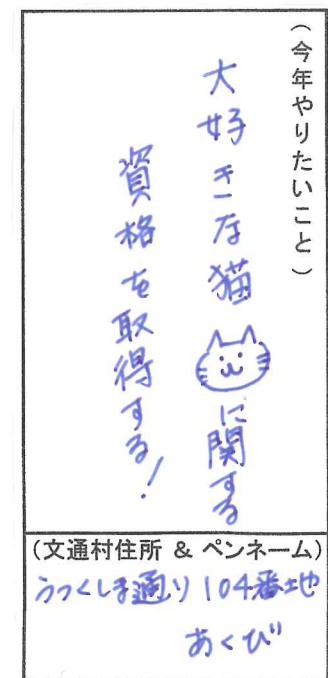 （今年やりたいこと）
大好きな猫に関する
資格を取得する！
（文通村住所 & ペンネーム）
うつくしま通り104番地
あくび